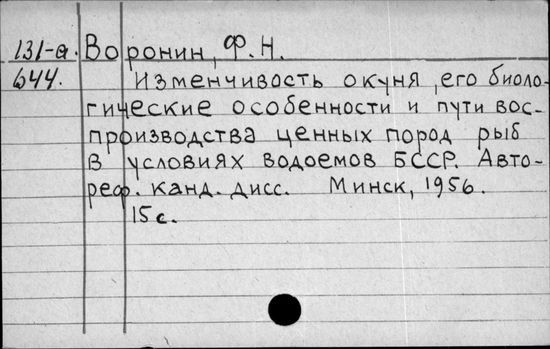 131-а. Воронин, Ф.Н.
644. Изменчивость окуня, его биоло-
гические особенности и пути вос-
производства ценных пород рыб
в условиях водоемов БССР. Авто-
реф. канд. дисс. Минск, 1956.
15 с.